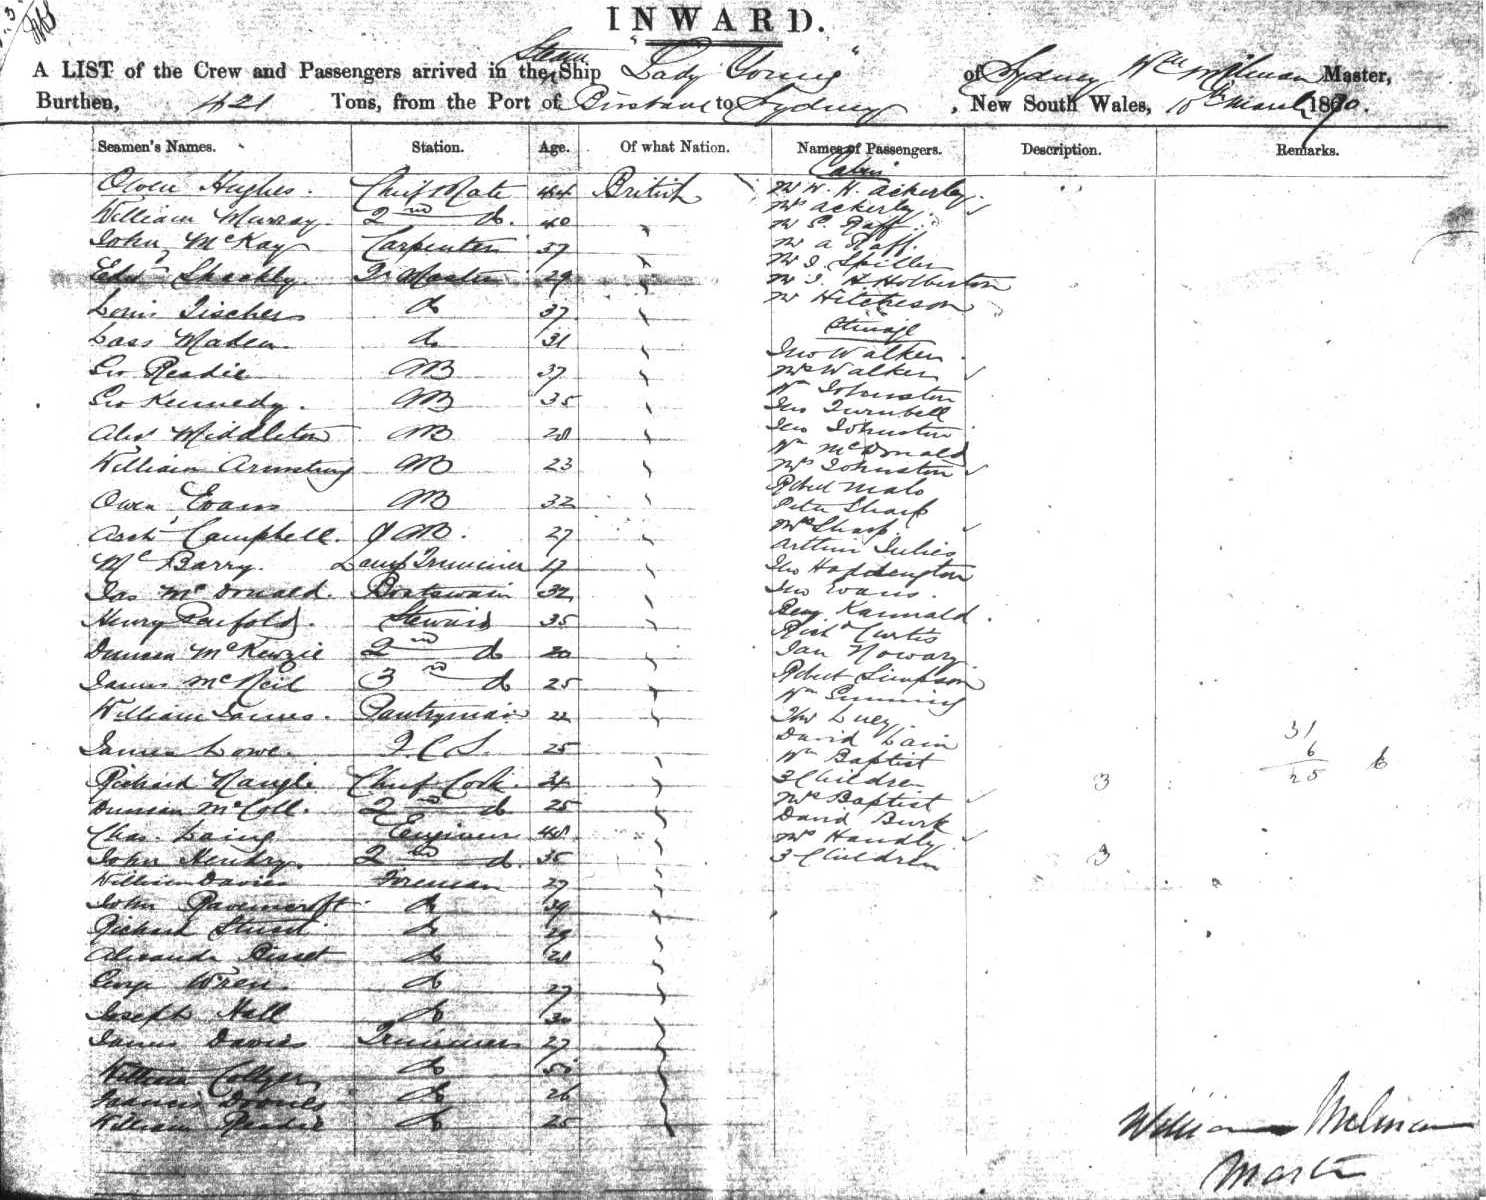 INWARD.
A LIST of the Crew and Passengers arrived in the Steam Ship "Lady Young" of Sydney Wm Milman Master,
Burthen, 421 Tons, from the Port of Brisbane to Sydney, New South Wales, 10th March 1870.
Seamen's Names. Station. Age. Of what Nation. Names of Passengers. Description. Remarks.
Owen Hughes. Chief Mate 44 British
William Murray. 2nd do. 40
John McKay Carpenter 37
Edwd Shackley. Qr Master 29
Louis Tischer do 37
Lass Maden do 31
Geo Readie AB 37
Geo Kennedy. AB 35
Alexr Middleton AB 28
William Armstrong AB 23
Owen Evans AB 32
Archd Campbell. AB. 27
Mc Barry. Lamp Trimmer 17
Jas McDonald. Boatswain 32
Henry Penfold. Steward 35
Duncan McKenzie 2nd do 20
James McNeil 3rd do 25
William James. Pantryman 22
James Lowe. F.C.S. 25
Richard Nangle Chief Cook. 34
Duncan McColl. 2nd do 25
Chas. Laing Engineer 48
John Hendry. 2nd do. 35
William Davies Foreman 27
John Ravenscroft do 39
Richard Stuart do 29
Alexander Bisset do 28
George Wren. do 27
Joseph Hall do 30
James Davies Trimmer 27
William Collyer do
Francis do 26
William Readie do 25
Cabin
Mr W. H. Ackerley.
Mrs Ackerley.
Mr E. Raff.
Mr A Raff.
Mr J. Spiller
Mr J. F Holberton
Mr Hitcheson
Steerage
Jno Walker
Mrs Walker
Wm Johnston
Jno Turnbell
Jno Johnston
Wm McDonald
Mrs Johnston
Robert Malo
Peter Sharp
Mrs Sharp
Arthur Julies
Jno Haddington
Jno Evans.
Benj Kannald.
Richd Curtis
Jan Nowary
Robert Simpson
Wm Cumming
Thos Luey.
David Cain
Wm Baptist
3 Children 3
Mrs Baptist
David Burk
Mrs Handly.
3 Children 3
31
6
25 6
William Milman
Master